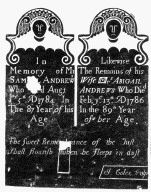 In
Memory of Mr
SAMLL ANDREWS
Who Died Augst
D 1784 In
The Year of his
Age.
Likewise
The Remains of his
Wife ABIGAIL
ANDREWS Who Died
Feby 13th D 1786
In the 89th Year
of her Age.
The sweet Remembrance of the Just
shall flourish when he sleeps in dust